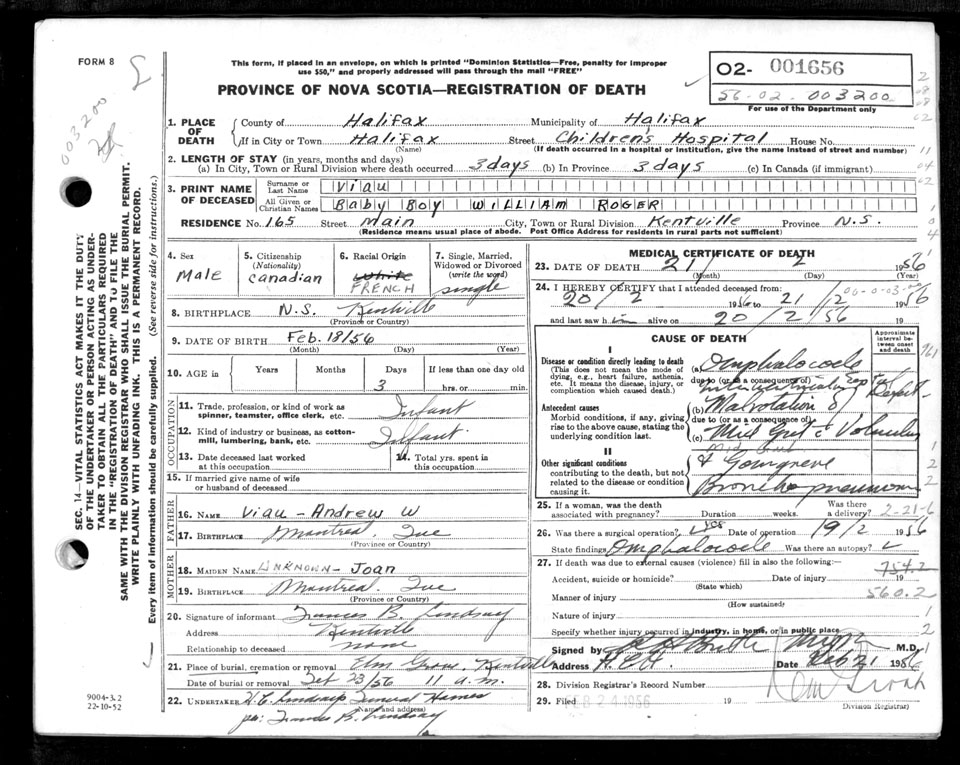 FORM 8
This form, if placed in an envelope, on which is printed "Dominion Statistics—Free, penalty for improper
use $50," and properly addressed will pass through the mail "FREE"
PROVINCE OF NOVA SCOTIA—REGISTRATION OF DEATH
O2- 001656
56-02 003200
For use of the Department only
003200
1. PLACE OF DEATH
County of Halifax Municipality of Halifax
If in City or Town Halifax Street Children's Hospital House No.
(Name) (If death occurred in a hospital or institution, give the name instead of street and number)
2. LENGTH OF STAY (in years, months and days)
(a) In City, Town or Rural Division where death occurred 3 days (b) In Province 3 days (c) In Canada (if immigrant)
3. PRINT NAME OF DECEASED
Surname or Last Name Viau
All Given or Christian Names Baby Boy William Roger
RESIDENCE No. 165 Street Main City, Town or Rural Division Kentville Province N.S.
(Residence means usual place of abode. Post Office Address for residents in rural parts not sufficient)
4. Sex
Male
5. Citizenship (Nationality)
Canadian
6. Racial Origin
White
FRENCH
7. Single, Married, Widowed or Divorced (write the word)
single
8. BIRTHPLACE N.S. Kentville
(Province or Country)
9. DATE OF BIRTH Feb. 18/56
(Month) (Day) (Year)
10. AGE in Years Months Days If less than one day old
3 hrs. or min.
OCCUPATION
11. Trade, profession, or kind of work as spinner, teamster, office clerk, etc. Infant
12. Kind of industry or business, as cotton-mill, lumbering, bank, etc. Infant
13. Date deceased last worked at this occupation
14. Total yrs. spent in this occupation
15. If married give name of wife or husband of deceased
FATHER
16. NAME Viau - Andrew W
17. BIRTHPLACE Montreal Que
(Province or Country)
MOTHER
18. MAIDEN NAME UNKNOWN - Joan
19. BIRTHPLACE Montreal Que
(Province or Country)
20. Signature of informant Frances B. Lindsay
Address Kentville
Relationship to deceased none
21. Place of burial, cremation or removal Elm Grove, Kentville
Date of burial or removal Feb 23/56 11 a.m.
22. UNDERTAKER H.C. Lindsay Funeral Homes
(Name and address)
per: Frances B. Lindsay
MEDICAL CERTIFICATE OF DEATH
23. DATE OF DEATH 21 2 1956
(Month) (Day) (Year)
24. I HEREBY CERTIFY that I attended deceased from:
20/2 1956 to 21/2 1956
and last saw him alive on 20/2/56 19
CAUSE OF DEATH
Approximate interval between onset and death
I
Disease or condition directly leading to death
(This does not mean the mode of dying, e.g., heart failure, asthenia, etc. It means the disease, injury, or complication which caused death.)
(a) Omphalocoele
due to (or as a consequence of)
Antecedent causes
Morbid conditions, if any, giving rise to the above cause, stating the underlying condition last.
(b) Malrotation of
due to (or as a consequence of)
(c) Mid Gut c Volvulus
II
Other significant conditions
contributing to the death, but not related to the disease or condition causing it.
& Gangrene
Bronchopneumonia
25. If a woman, was the death associated with pregnancy? Duration weeks. Was there a delivery?
2-21-6
26. Was there a surgical operation? yes Date of operation 19/2 1956
State findings Omphalocoele Was there an autopsy?
27. If death was due to external causes (violence) fill in also the following:—
754.2
Accident, suicide or homicide? Date of injury 19
(State which)
560.2
Manner of injury
(How sustained)
Nature of injury
Specify whether injury occurred in industry, in home, or in public place
Signed by M.D.
Address Date Feb 21 1956
28. Division Registrar's Record Number
29. Filed FEB 24 1956 19
Division Registrar
SEC. 14—VITAL STATISTICS ACT MAKES IT THE DUTY
OF THE UNDERTAKER OR PERSON ACTING AS UNDER-
TAKER TO OBTAIN ALL THE PARTICULARS REQUIRED
IN THE "REGISTRATION OF DEATH" AND TO FILE THE
SAME WITH THE DIVISION REGISTRAR WHO SHALL ISSUE THE BURIAL PERMIT.
WRITE PLAINLY WITH UNFADING INK. THIS IS A PERMANENT RECORD.
Every item of information should be carefully supplied. (See reverse side for instructions.)
9004-3.2
22-10-52